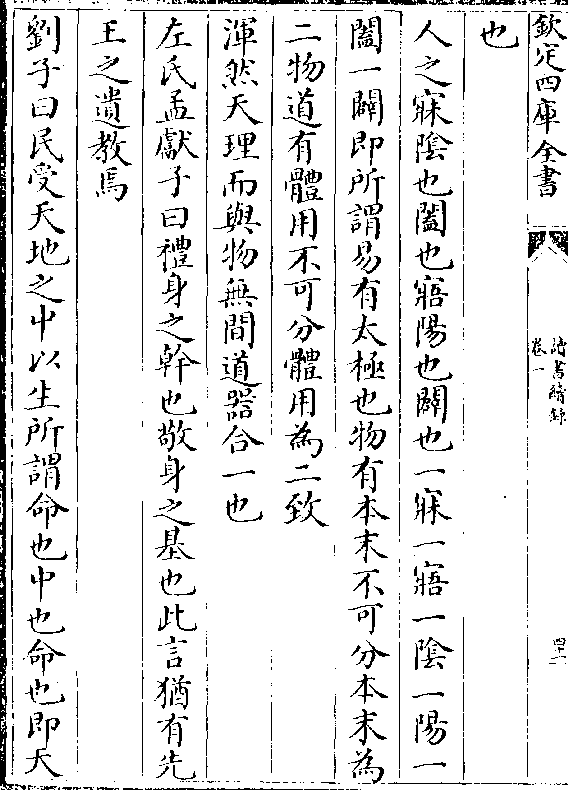 欽定四庫全書
讀書續錄
卷一
四十二
也
人之寐陰也闔也寤陽也闢也一寐一寤一陰一陽一
闔一闢即所謂易有太極也物有本末不可分本末為
二物道有體用不可分體用為二致
渾然天理而與物無間道器合一也
左氏孟獻子曰禮身之幹也敬身之基也此言猶有先
王之遺教焉
劉子曰民受天地之中以生所謂命也中也命也即天